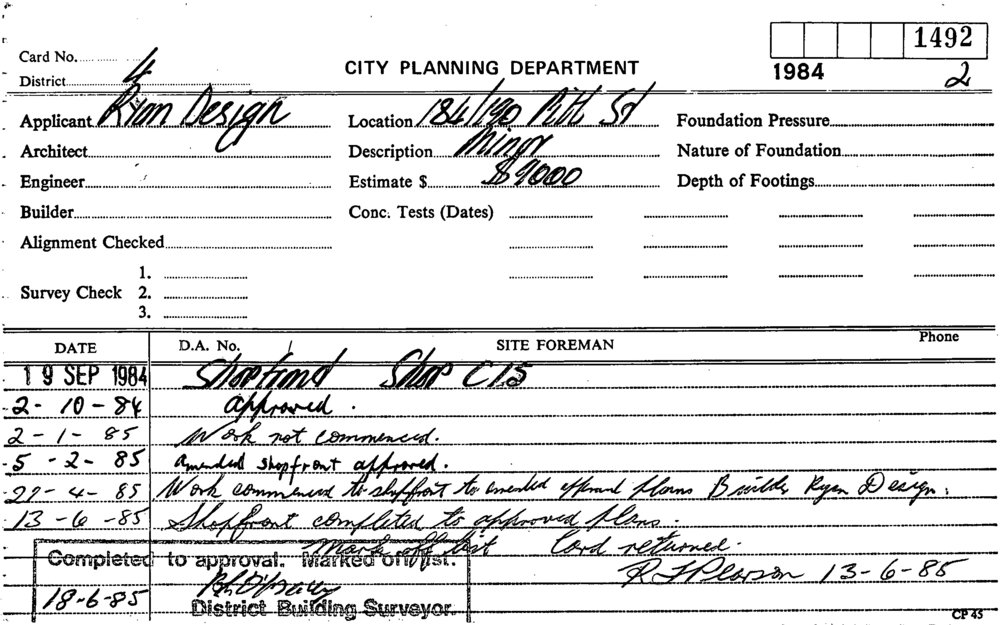 1492
Card No.
CITY PLANNING DEPARTMENT
1984
2
District 4
Applicant Ryan Design
Location 184/190 Pitt St
Foundation Pressure
Architect
Description Minor
Nature of Foundation
Engineer
Estimate $ $9000
Depth of Footings
Builder
Conc. Tests (Dates)
Alignment Checked
1.
Survey Check 2.
3.
DATE D.A. No. SITE FOREMAN Phone
19 SEP 1984 Shopfront Shop C15
2-10-84 approved.
2-1-85 Work not commenced.
5-2-85 Amended shopfront approved.
22-4-85 Work commenced to shopfront to amended approved plans Builder Ryan Design.
13-6-85 Shopfront completed to approved plans.
Mark off list Card returned.
Completed to approval. Marked off list.
R J Pearson 13-6-85
18-6-85
District Building Surveyor.
CP 45